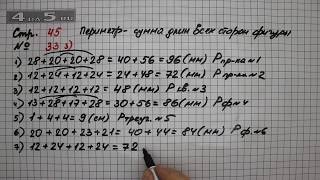 4 ПЯ 5. ru
Стр. 45 Периметр - сумма длин всех сторон фигуры
№ 33 з)
1) 28+20+20+28 = 40+56 = 96 (мм) Р пр-ка №1
2) 12+24+12+24 = 24+48 = 72 (мм) Р пр-ка №2
3) 12+12+12+12 = 48 (мм) Р кв. №3
4) 13+28+17+28 = 30+56 = 86 (мм) Рф №4
5) 1+4+4 = 9 (см) Р треуг. №5
6) 20+20+23+21 = 40+44 = 84 (мм) Р ф. №6
7) 12+24+12+24 = 72